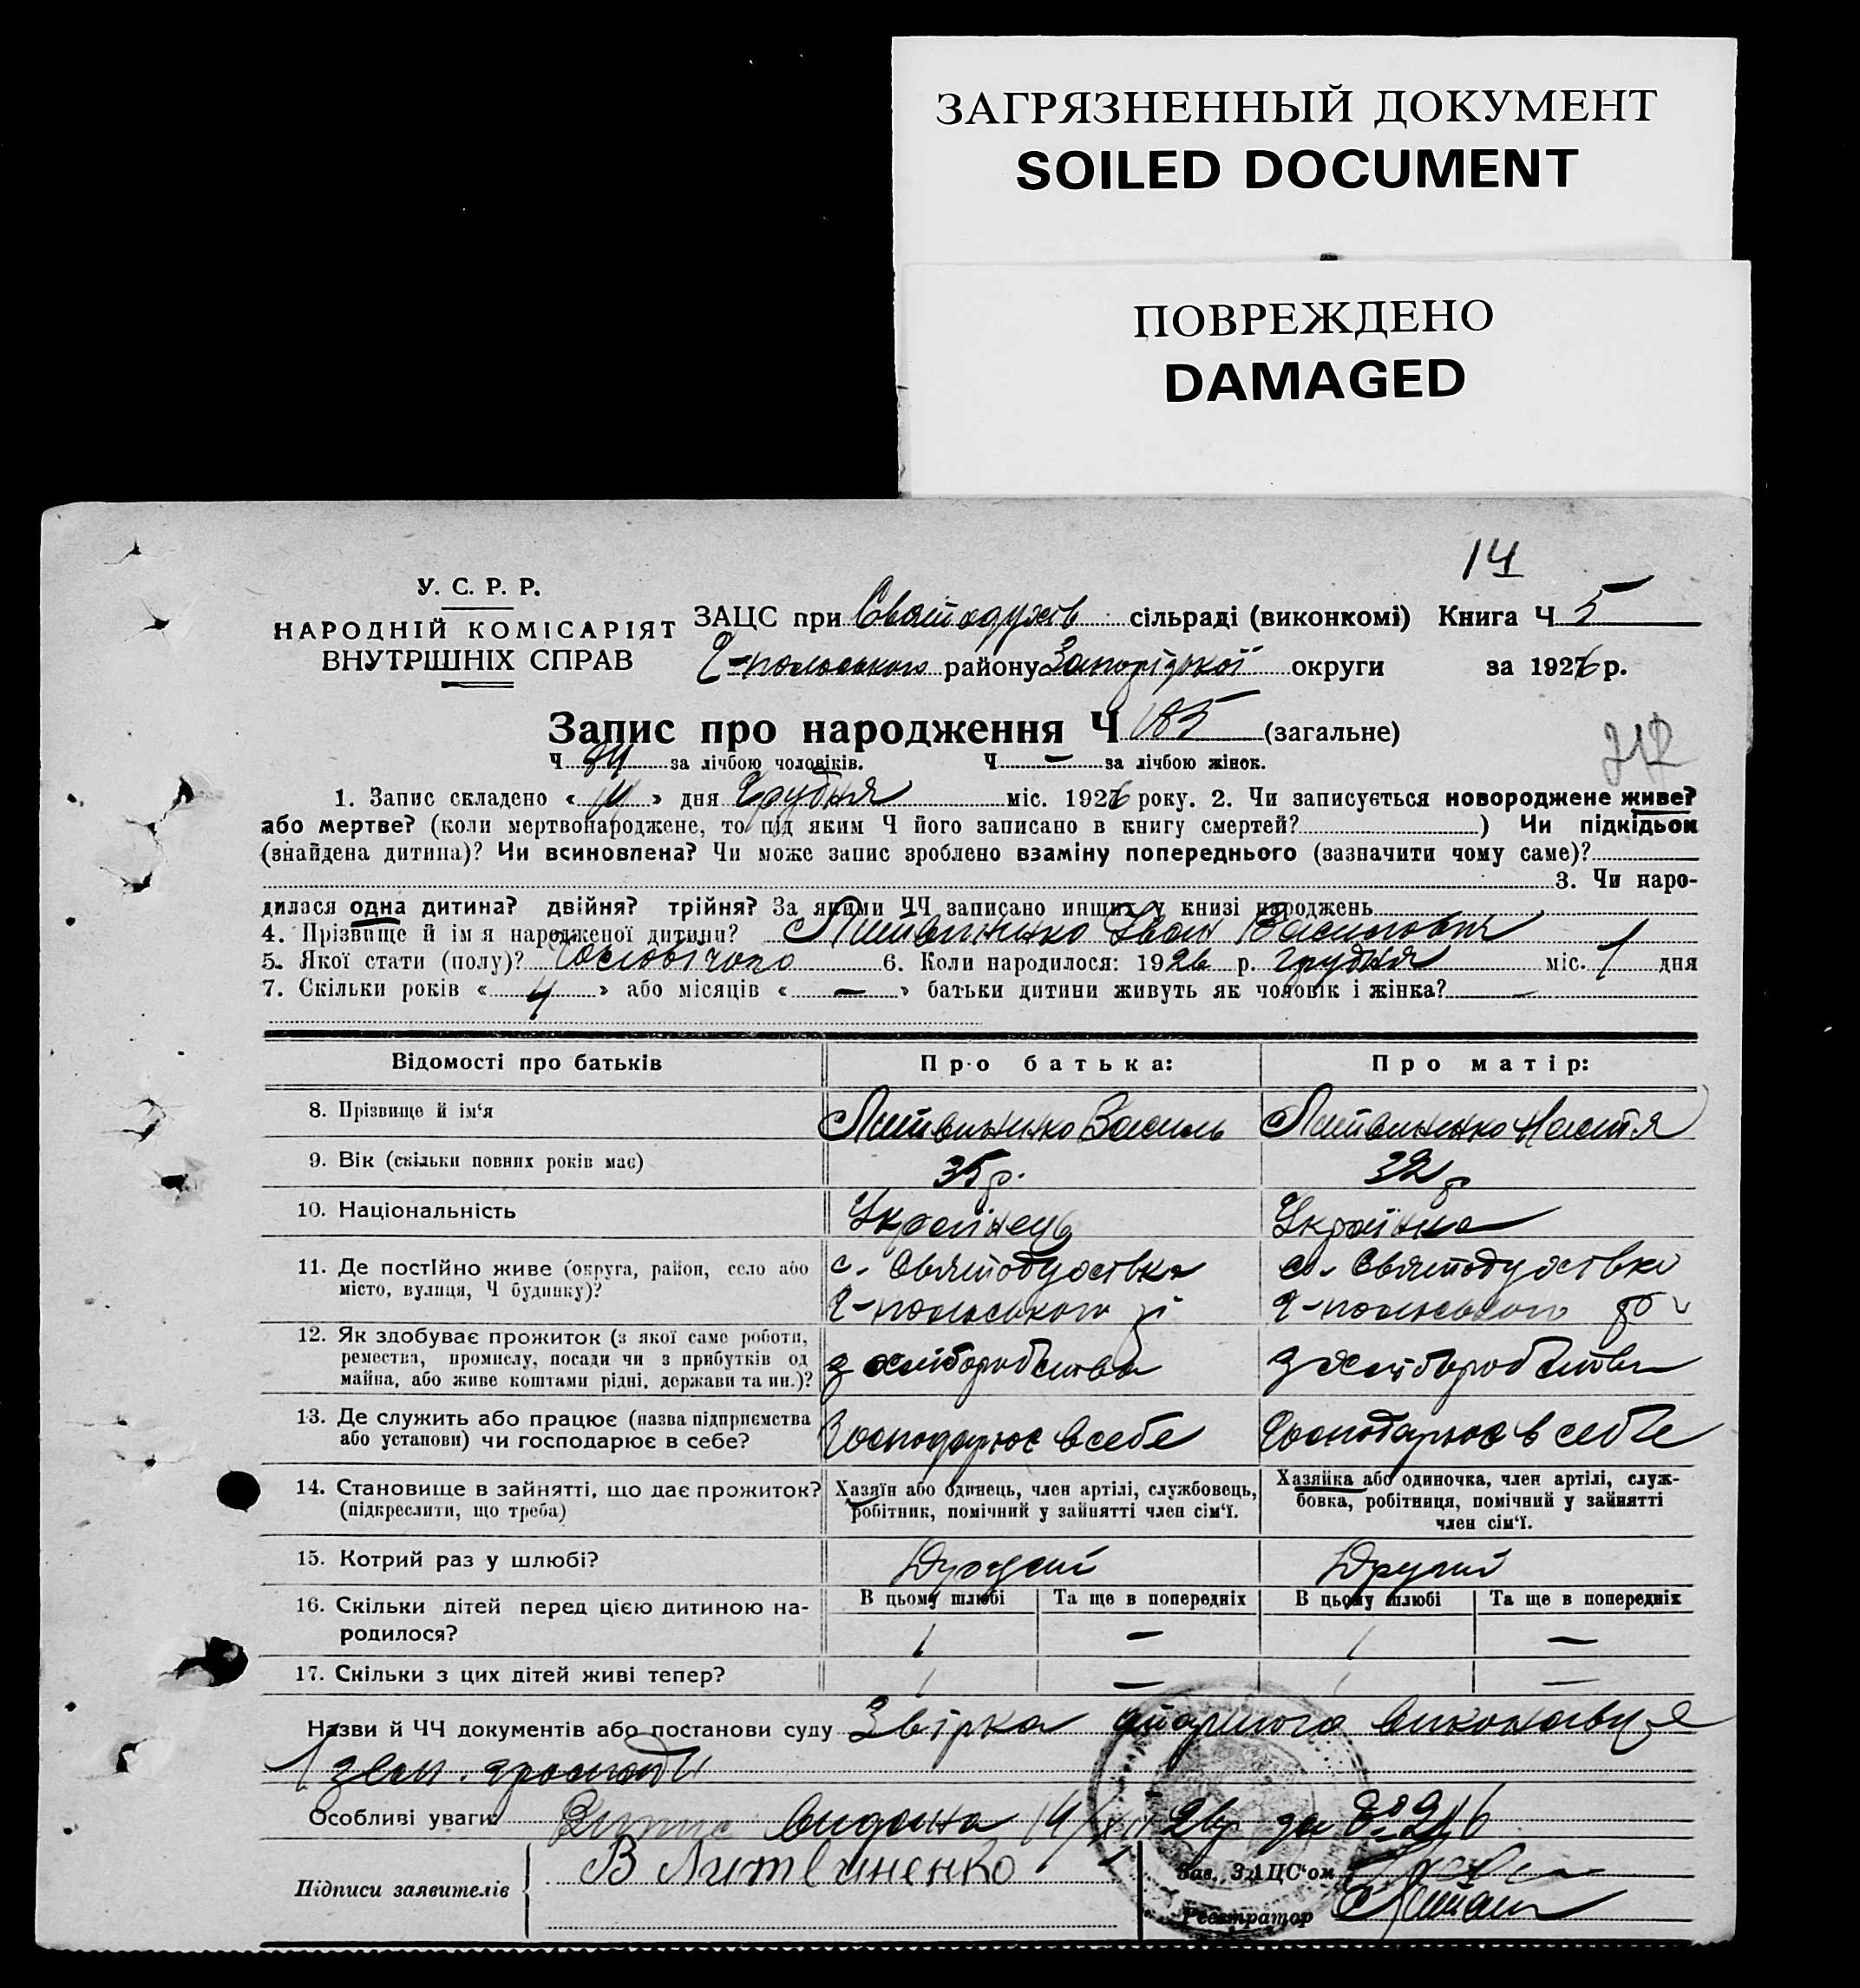 ЗАГРЯЗНЕННЫЙ ДОКУМЕНТ
SOILED DOCUMENT
ПОВРЕЖДЕНО
DAMAGED
14
У. С. Р. Р.
НАРОДНІЙ КОМІСАРІЯТ
ВНУТРІШНІХ СПРАВ
ЗАЦС при Святодухів сільраді (виконкомі) Книга Ч 5
Г-польського району Запорізької округи за 1926 р.
Запис про народження Ч 185 (загальне)
Ч 94 за лічбою чоловіків. Ч — за лічбою жінок.
212
1. Запис складено « 14 » дня Грудня міс. 1926 року. 2. Чи записується новороджене живе?
або мертве? (коли мертвонароджене, то під яким Ч його записано в книгу смертей? ) Чи підкідьок
(знайдена дитина)? Чи всиновлена? Чи може запис зроблено взаміну попереднього (зазначити чому саме)?
3. Чи наро-
дилася одна дитина? двійня? трійня? За якими ЧЧ записано инших у книзі народжень
4. Прізвище й імя народженої дитини? Литвиненко Іван Васильович
5. Якої стати (полу)? Чоловічого 6. Коли народилося: 1926 р. грудня міс. 1 дня
7. Скільки років « 4 » або місяців « — » батьки дитини живуть як чоловік і жінка? —
Відомості про батьків Про батька: Про матір:
8. Прізвище й ім'я Литвиненко Василь Литвиненко Настя
9. Вік (скільки повних років має) 35 р. 32 р
10. Національність Українець Українка
11. Де постійно живе (округа, район, село або
місто, вулиця, Ч будинку)?
с. Святодухівка с. Святодухівка
Г-польського Г-польського
12. Як здобуває прожиток (з якої саме роботи,
ремества, промислу, посади чи з прибутків од
майна, або живе коштами рідні, держави та ин.)?
з хліборобства з хліборобства
13. Де служить або працює (назва підприємства
або установи) чи господарює в себе?
Господарює в себе Господарює в себе
14. Становище в зайнятті, що дає прожиток?
(підкреслити, що треба)
Хазяїн або одинець, член артілі, службовець,
робітник, помічний у зайнятті член сім'ї.
Хазяйка або одиночка, член артілі, служ-
бовка, робітниця, помічний у зайнятті
член сім'ї.
15. Котрий раз у шлюбі? Другий Другий
16. Скільки дітей перед цією дитиною на-
родилося?
В цьому шлюбі Та ще в попередніх В цьому шлюбі Та ще в попередніх
1 — 1 —
17. Скільки з цих дітей живі тепер? 1 — 1 —
Назви й ЧЧ документів або постанови суду Звірка виконавця
зем. громади
Особливі уваги: Витяг видана 14/XII 26р за
Підписи заявителів В Литвиненко
Зав. ЗАЦС'ом
Реєстратор